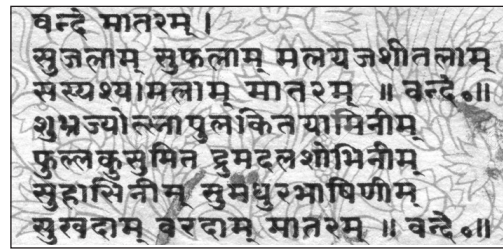 वन्दे मातरम् ।
सुजलाम् सुफलाम् मलयजशीतलाम्
सस्यश्यामलाम् मातरम् ॥ वन्दे॰॥
शुभ्रज्योत्स्नापुलकितयामिनीम्
फुल्लकुसुमित द्रुमदलशोभिनीम्
सुहासिनीम् सुमधुरभाषिणीम्
सुखदाम् वरदाम् मातरम् ॥ वन्दे॰॥